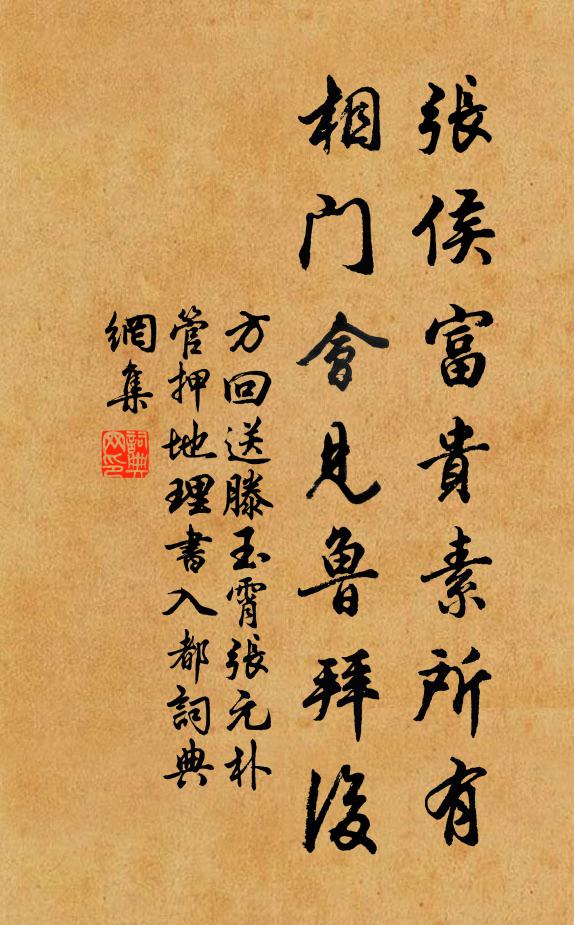 張侯富貴素所有
相門會見魯拜後
方回送滕玉霄張元朴
管押地理書入都詞典
網集
詞典
网印